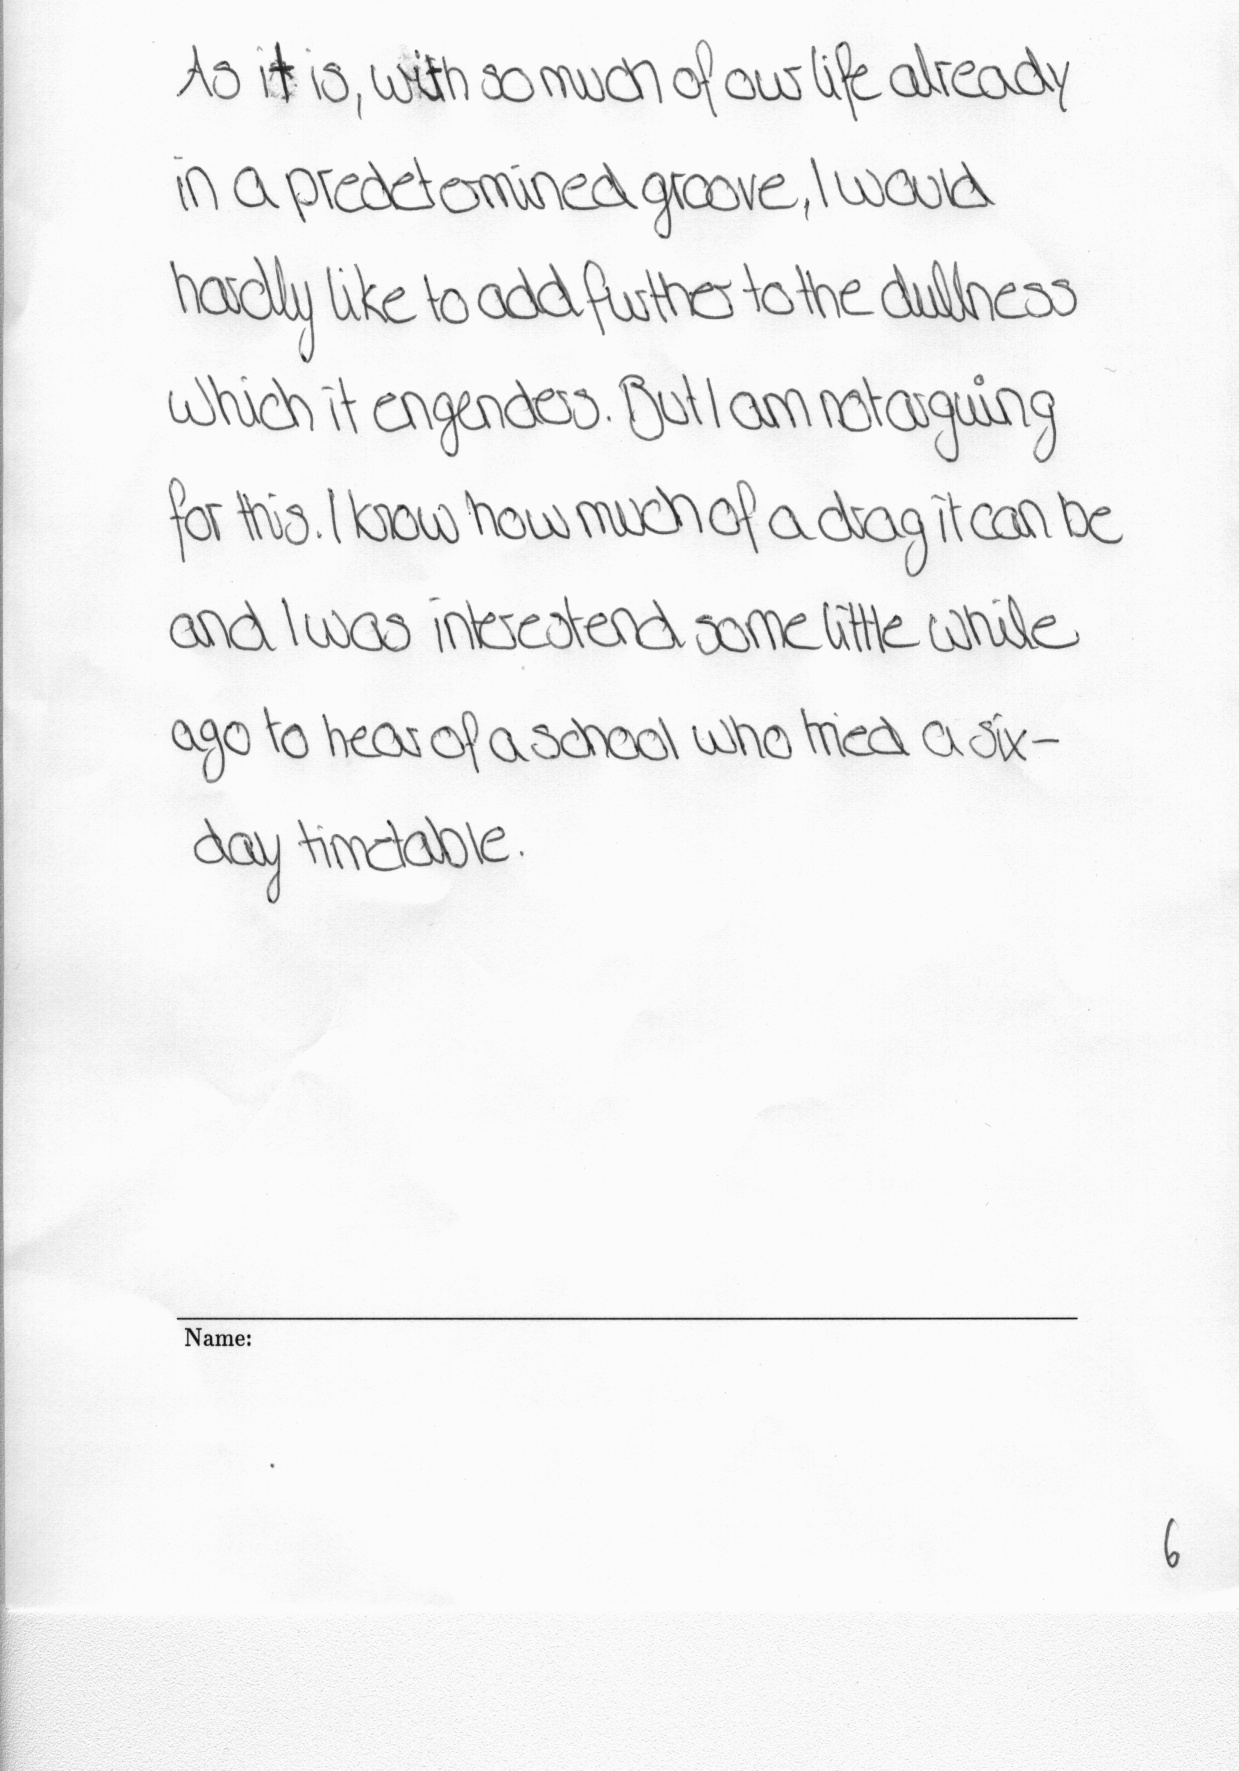 As it is, with so much of our life already
in a predetermined groove, I would
hardly like to add further to the dullness
which it engenders. But I am not arguing
for this. I know how much of a drag it can be
and I was interestend some little while
ago to hear of a school who tried a six-
day timetable.
Name:
6